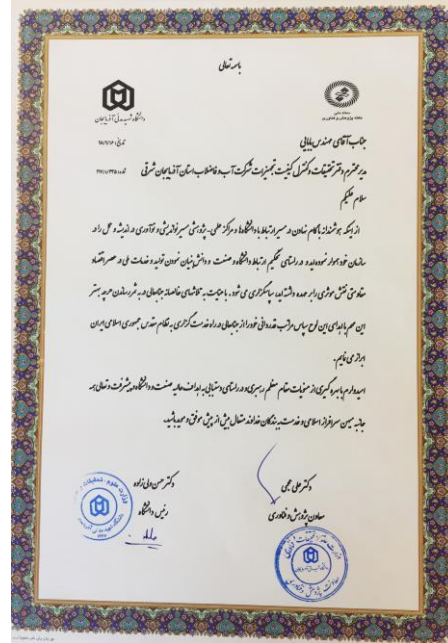 باسمه تعالی
دانشگاه شهید مدنی آذربایجان
جناب آقای مهندس بابایی
مدیر محترم دفتر تحقیقات و کنترل کیفیت تجهیزات شرکت آب و فاضلاب استان آذربایجان شرقی
سلام علیکم
از اینکه هوشمندانه با گام نهادن در مسیر ارتباط با دانشگاهها و مراکز علمی-پژوهشی مسیر نواندیشی و نوآوری در اندیشه و عمل را در
سازمان خود هموار نموده‌اید و در راستای تحکیم ارتباط دانشگاه و صنعت و دانش بنیان نمودن تولید و خدمات ملی در عصر اقتصاد
مقاومتی نقش موثری را بر عهده داشته اید، سپاسگزاری می شود. با عنایت به تلاشهای خالصانه جنابعالی در به ثمر رساندن هرچه بهتر
این مهم با اهدای این لوح سپاس مراتب قدردانی خود را از جنابعالی در راه خدمت گزاری به نظام مقدس جمهوری اسلامی ایران
ابراز می نمایم.
امیدوارم با بهره گیری از منویات مقام معظم رهبری و در راستای دستیابی به اهداف عالیه صنعت و دانشگاه در پیشرفت و تعالی همه
جانبه میهن سرافراز اسلامی و خدمت به بندگان خداوند متعال بیش از پیش موفق و موید باشید.
دکتر علی عجمی
معاون پژوهش و فناوری
دکتر حسن ولی زاده
رئیس دانشگاه